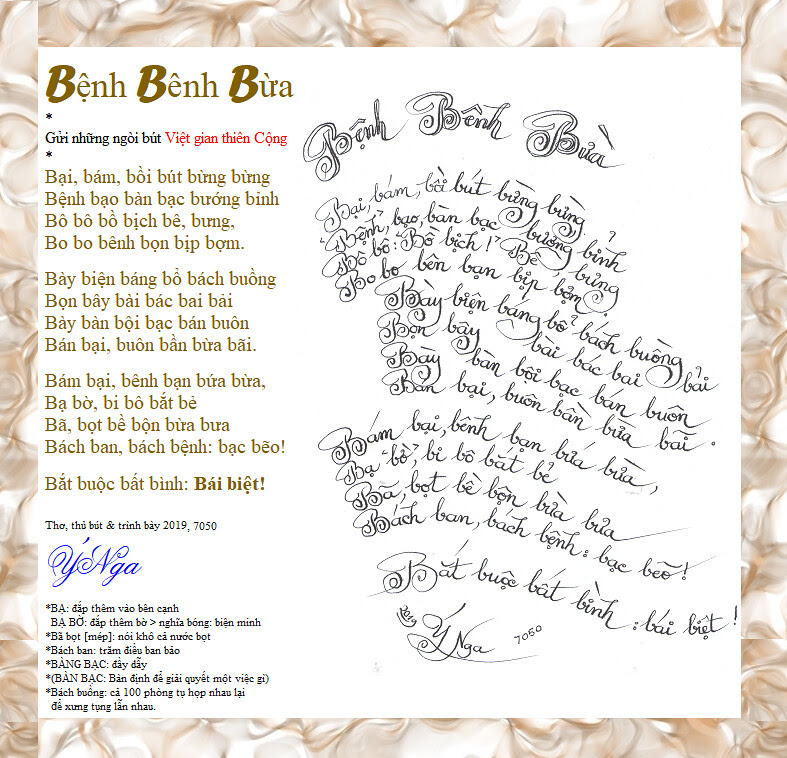 Bệnh Bênh Bừa
*
Gửi những ngòi bút Việt gian thiên Cộng
*
Bại, bám, bồi bút bừng bừng
Bệnh bạo bàn bạc bướng bỉnh
Bô bô bồ bịch bê, bưng,
Bo bo bênh bọn bịp bợm.
Bày biện báng bổ bách buồng
Bọn bây bài bác bai bải
Bày bàn bội bạc bán buôn
Bán bại, buôn bần bừa bãi.
Bám bại, bênh bạn bứa bừa,
Bạ bờ, bi bô bắt bẻ
Bã, bọt bề bộn bừa bưa
Bách ban, bách bệnh: bạc bẽo!
Bắt buộc bất bình: Bái biệt!
Thơ, thủ bút & trình bày 2019, 7050
Ý Nga
*BẠ: đắp thêm vào bên cạnh
BẠ BỜ: đắp thêm bờ > nghĩa bóng: biện minh
*Bã bọt [mép]: nói khô cả nước bọt
*Bách ban: trăm điều ban bảo
*BÀNG BẠC: đầy dẫy
*(BÀN BẠC: Bàn định để giải quyết một việc gì)
*Bách buồng: cả 100 phòng tụ họp nhau lại
để xưng tụng lẫn nhau.
Bệnh Bênh Bừa
Bại, bám, bồi bút bừng bừng
"Bệnh" bạo, bàn bạc bướng bỉnh
Bô bô: "Bồ bịch!" Bê bưng
Bo bo bên bạn bịp bợm.
Bày biện báng bổ bách buồng
Bọn bây bài bác bai bải
Bày bàn bội bạc bán buôn
Bán bại, buôn bần bừa bãi.
Bám bại, bênh bạn bứa bừa,
Bạ "bờ", bi bô bắt bẻ
Bã, bọt bề bộn bừa bưa
Bách ban, bách bệnh: bạc bẽo!
Bắt buộc bất bình: bái biệt!
2019 Ý Nga 7050